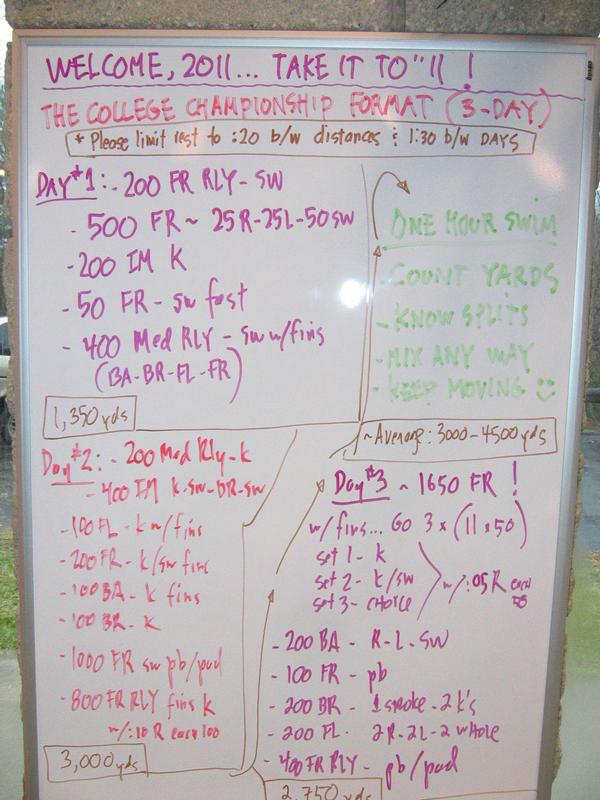 WELCOME, 2011... TAKE IT TO "11 !
THE COLLEGE CHAMPIONSHIP FORMAT (3-DAY)
* Please limit rest to :20 b/w distances & 1:30 b/w DAYS
DAY #1: - 200 FR RLY - SW
- 500 FR ~ 25R-25L-50SW
- 200 IM K
- 50 FR - SW fast
- 400 Med RLY - SW w/fins
(BA-BR-FL-FR)
1,350 yds
ONE HOUR SWIM
- COUNT YARDS
- KNOW SPLITS
- MIX ANY WAY
- KEEP MOVING
~Average: 3000-4500 yds
Day #2: - 200 Med Rly - k
- 400 IM K-SW-DR-SW
- 100 FL - k w/fins
- 200 FR - k/sw fins
- 100 BA - k fins
- 100 BR - K
- 1000 FR sw pb/pad
- 800 FR RLY fins k
w/:10 R each 100
3,000 yds
Day #3 ~ 1650 FR !
w/fins... GO 3 x (11 x 50)
set 1 - K
set 2 - k/sw
set 3 - CHOICE
w/:05 R each 50
- 200 BA - R-L-SW
- 100 FR - pb
- 200 BR - 1 stroke - 2 k's
- 200 FL - 2R-2L-2 whole
- 400 FR RLY - pb/pad
2,750 yds